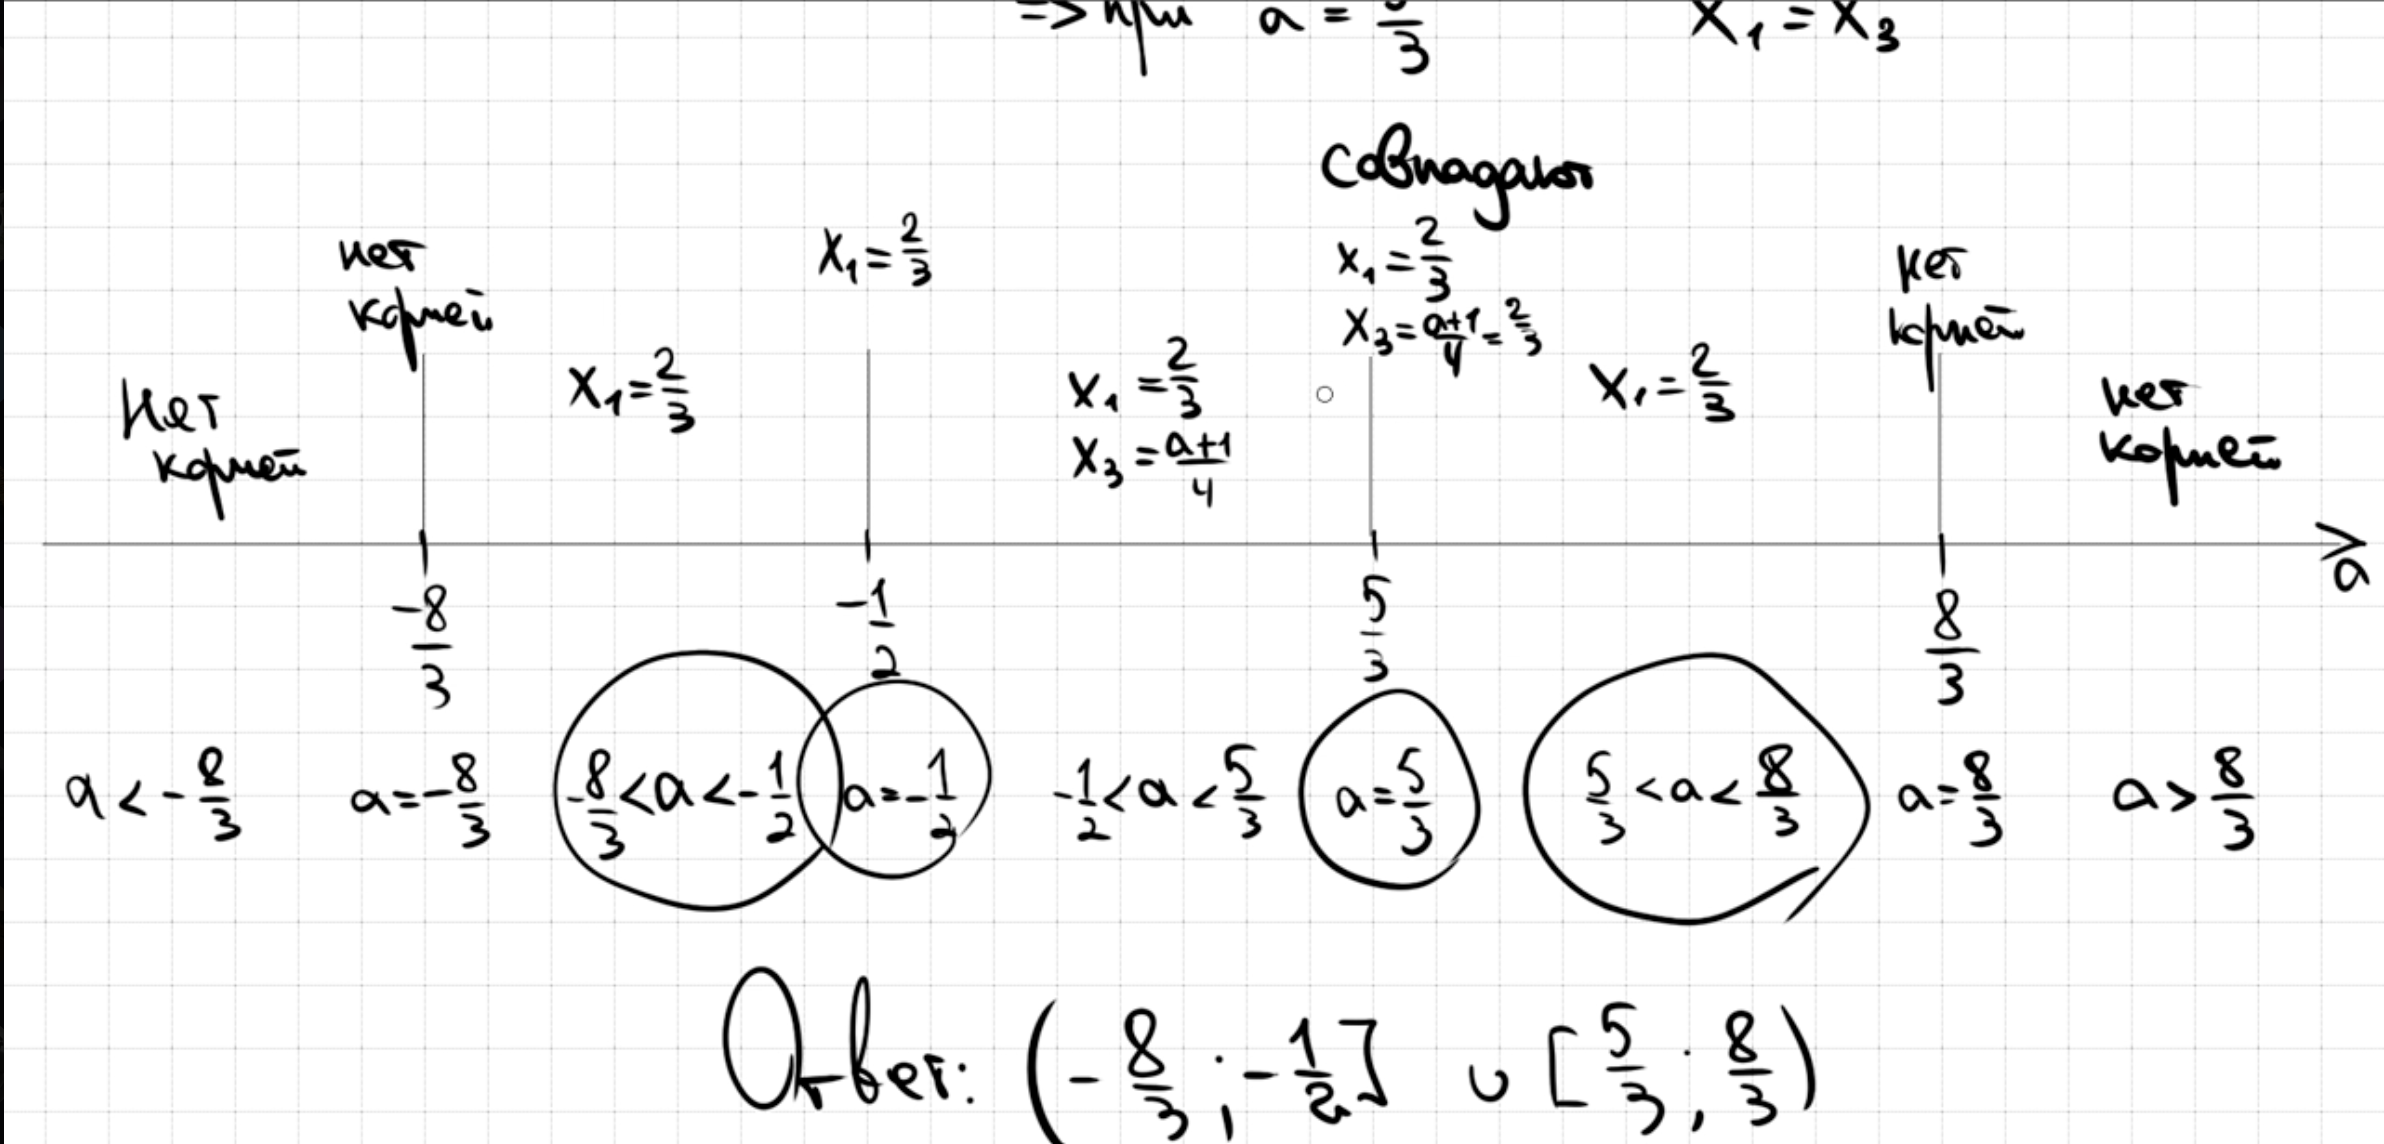 => при a = 5/3 x₁ = x₃
совпадают
нет корней
нет корней
x₁ = 2/3
x₁ = 2/3
x₁ = 2/3
x₃ = (a+1)/4
x₁ = 2/3
x₃ = (a+1)/4 = 2/3
x₁ = 2/3
нет корней
нет корней
-8/3 -1/2 5/3 8/3 a
a < -8/3 a = -8/3 -8/3 < a < -1/2 a = -1/2 -1/2 < a < 5/3 a = 5/3 5/3 < a < 8/3 a = 8/3 a > 8/3
Ответ: (-8/3; -1/2] ∪ [5/3; 8/3)